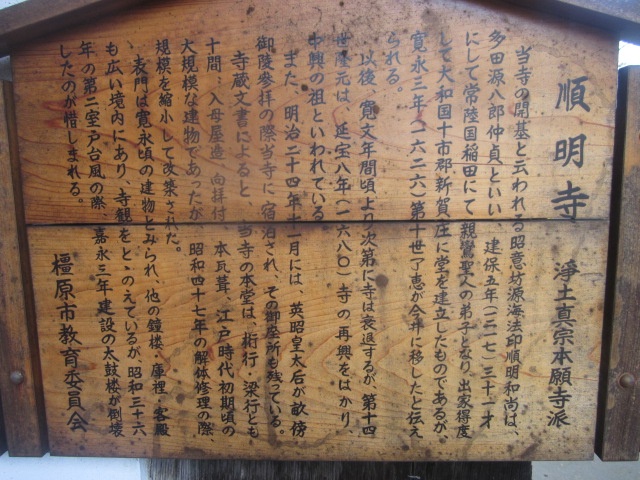 順明寺 浄土真宗本願寺派
当寺の開基と云われる昭意坊源海法印順明和尚は、
多田源八郎仲貞といい 建保五年(一二一七)三十一才
にして常陸国稲田にて親鸞聖人の弟子となり、出家得度
して大和国十市郡新賀庄に堂を建立したものであるが、
寛永三年(一六二六)第十世了恵が今井に移したと伝え
られる。
以後、寛文年間頃より次第に寺は衰退するが、第十四
世隆元は、延宝八年(一六八〇)寺の再興をはかり、
中興の祖といわれている
また、明治二十四年十一月には、英昭皇太后が畝傍
御陵参拝の際当寺に宿泊され、その御座所も残っている。
寺蔵文書によると、当寺の本堂は、桁行・梁行とも
十間、入母屋造 向拝付 本瓦葺、江戸時代初期頃の
大規模な建物であったが 昭和四十七年の解体修理の際、
規模を縮小して改築された。
表門は寛永頃の建物とみられ、他の鐘楼、庫裡・客殿
も広い境内にあり、寺観をとゝのえているが、昭和三十六
年の第二室戸台風の際、嘉永三年建設の太鼓楼が倒壊
したのが惜しまれる。
橿原市教育委員会